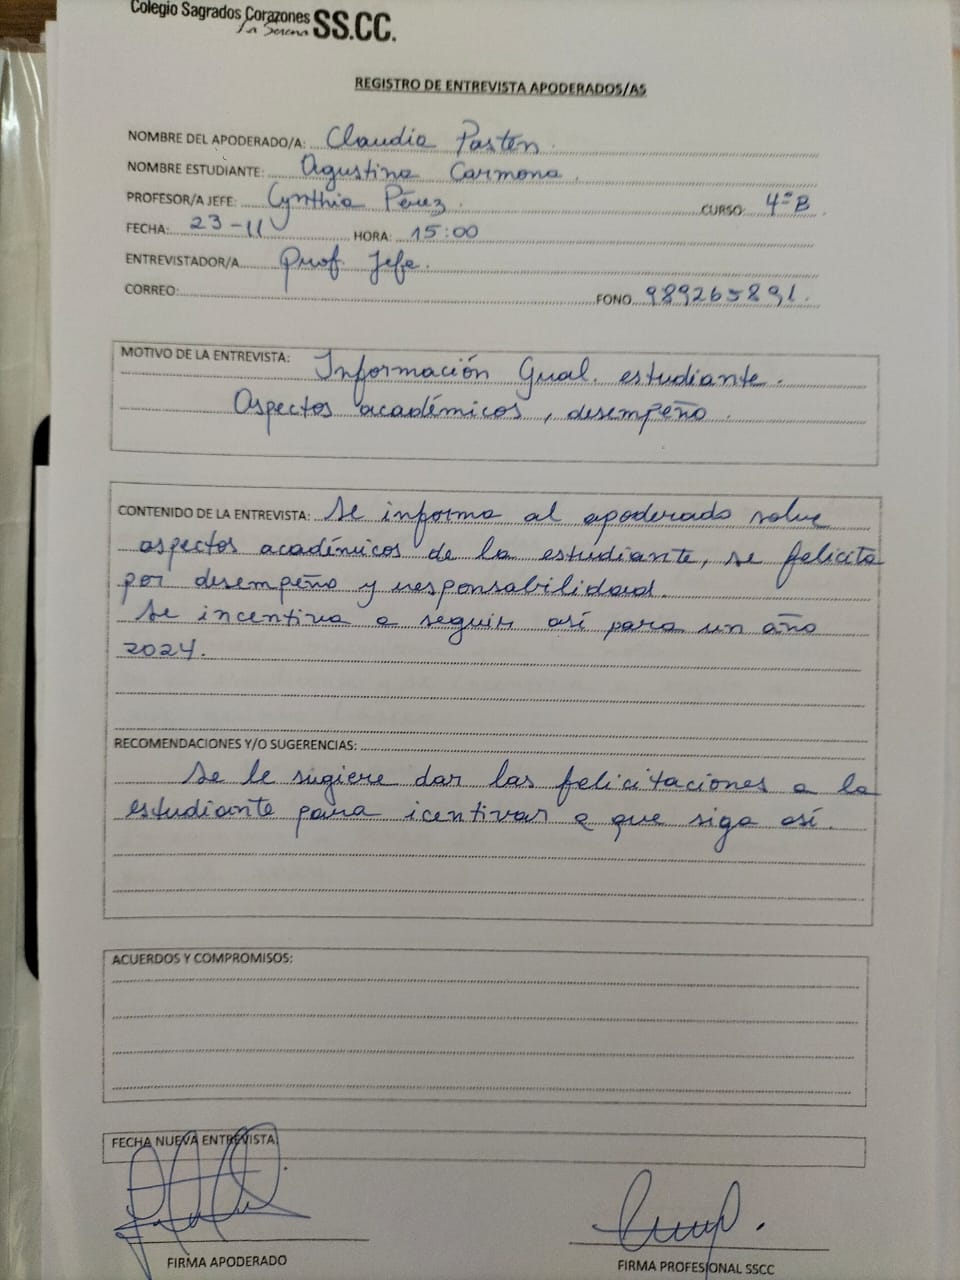 Colegio Sagrados Corazones
La Serena SS.CC.
REGISTRO DE ENTREVISTA APODERADOS/AS
NOMBRE DEL APODERADO/A: Claudia Pasten.
NOMBRE ESTUDIANTE: Agustina Carmona.
PROFESOR/A JEFE: Cynthia Pérez. CURSO: 4°B
FECHA: 23-11 HORA: 15:00
ENTREVISTADOR/A Prof. Jefe.
CORREO: FONO 989265891.
MOTIVO DE LA ENTREVISTA: Información Gual. estudiante.
Aspectos académicos, desempeño.
CONTENIDO DE LA ENTREVISTA: Se informa al apoderado sobre
aspectos académicos de la estudiante, se felicita
por desempeño y responsabilidad.
Se incentiva a seguir así para un año
2024.
RECOMENDACIONES Y/O SUGERENCIAS:
Se le sugiere dar las felicitaciones a la
estudiante para icentivar a que siga así.
ACUERDOS Y COMPROMISOS:
FECHA NUEVA ENTREVISTA:
FIRMA APODERADO
FIRMA PROFESIONAL SSCC